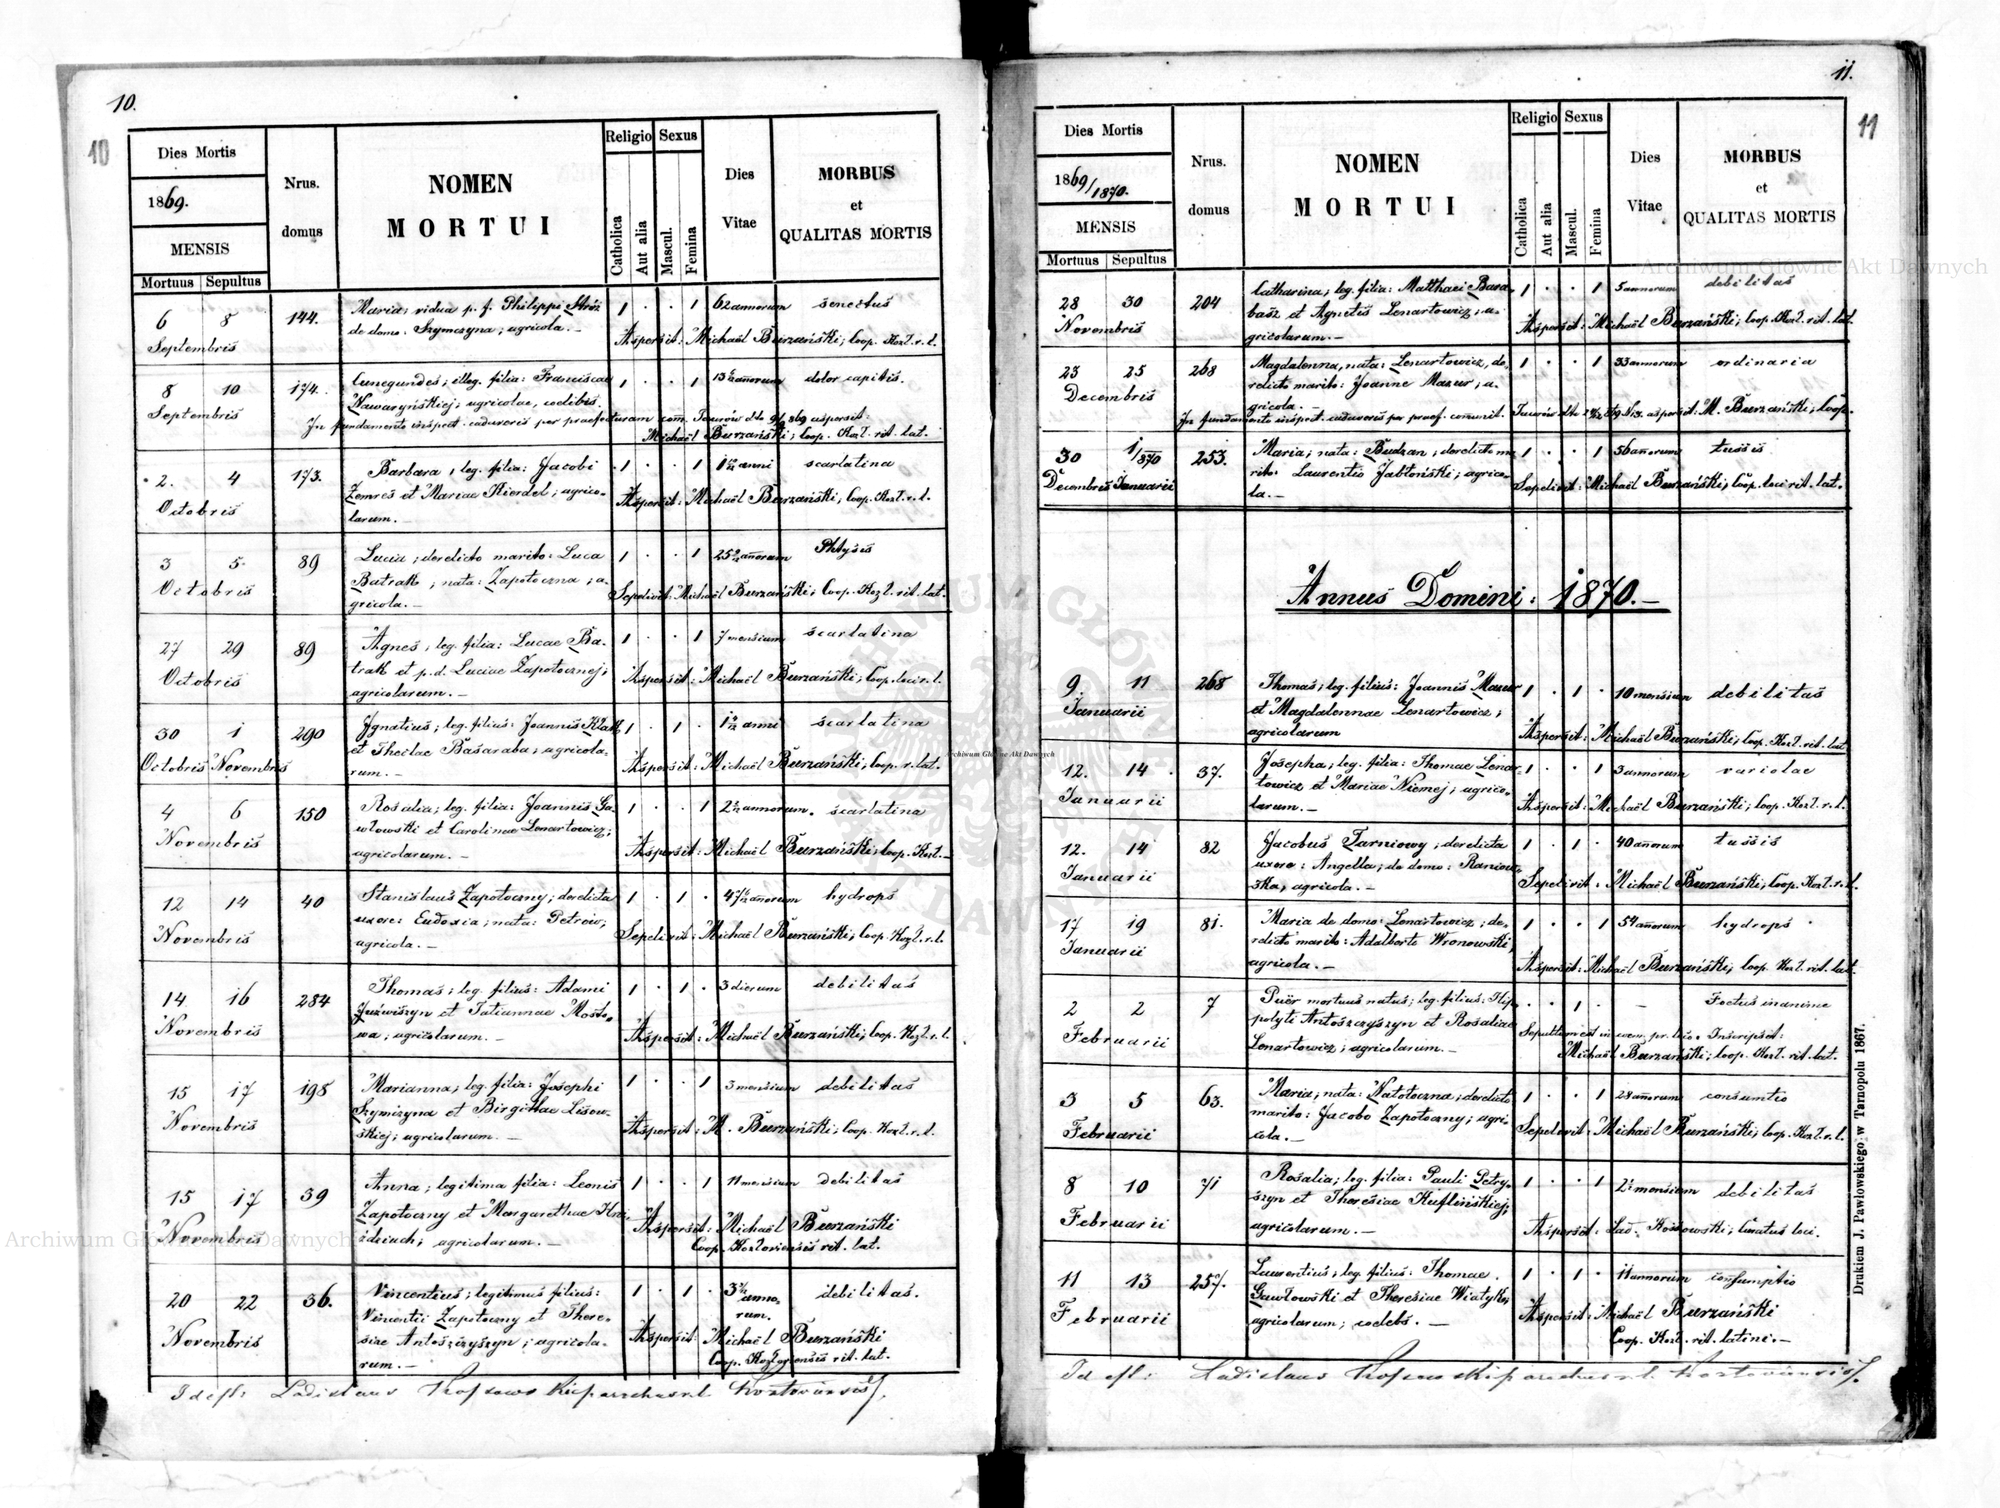 10.
10
Dies Mortis
1869.
MENSIS
Mortuus Sepultus
Nrus.
domus
NOMEN
MORTUI
Religio
Catholica
Aut alia
Sexus
Mascul.
Femina
Dies
Vitae
MORBUS
et
QUALITAS MORTIS
6 8 144. Maria, vidua p. f. Philippi Stróż 1 · · 1 62 annorum senectus
Septembris de domo: Szymczyna; agricola. — Aspersit: Michaël Burzański; Coop. Kozł. r. l.
8 10 174. Cunegundes; illeg. filia: Franciscae 1 · · 1 dolor capitis.
Septembris Nawaryńskiej; agricolae, coelibis.
In fundamento inspect. cadaveris per praefecturam com. aspersit:
Michaël Burzański; Coop. Kozł. rit. lat.
2. 4 173. Barbara, leg. filia: Jacobi 1 · · 1 anni scarlatina
Octobris et Mariae Kierdel; agrico- Aspersit: Michaël Burzański; Coop. Kozł. r. l.
larum. —
3 5 89 Lucia; derelicto marito: Luca 1 · · 1 annorum Phtysis
Octobris Batrak; nata: Zapotoczna; a- Sepelivit: Michaël Burzański; Coop. Kozł. rit. lat.
gricola. —
27 29 89 Agnes; leg. filia: Lucae Ba- 1 · · 1 7 mensium scarlatina
Octobris trak et p. d. Luciae Zapotocznej; Aspersit: Michaël Burzański; Coop. loci r. l.
agricolarum. —
30 1 290 Ignatius; leg. filius: Joannis Kłak 1 · 1 · anni scarlatina
Octobris Novembris et Theclae Basaraba; agricola- Aspersit: Michaël Burzański; Coop. r. lat.
rum. —
4 6 150 Rosalia; leg. filia: Joannis Ga- 1 · · 1 annorum. scarlatina
Novembris włowski et Carolinae Lenartowicz; Aspersit: Michaël Burzański; Coop. Kozł. —
agricolarum. —
12 14 40 Stanislaus Zapotoczny; derelicta 1 · 1 · annorum hydrops
Novembris uxore: Eudoxia; nata: Petrów; Sepelivit: Michaël Burzański; Coop. Kozł. r. l.
agricola. —
14 16 284 Thomas; leg. filius: Adami 1 · 1 · 3 dierum debilitas
Novembris Juźwiszyn et Tatiannae Mosto- Aspersit: Michaël Burzański; Coop. Kozł. r. l.
wa; agricolarum. —
15 17 198 Marianna; leg. filia: Josephi 1 · · 1 3 mensium debilitas
Novembris Szymczyna et Birgithae Lisow- Aspersit: M. Burzański; Coop. Kozł. r. l.
skiej; agricolarum. —
15 17 39 Anna; legitima filia: Leonis 1 · · 1 11 mensium debilitas
Novembris Zapotoczny et Margarethae Aspersit: Michaël Burzański
agricolarum. — Coop. Kozłoviensis rit. lat.
20 22 36. Vincentius; legitimus filius: 1 · 1 · 3½ anno- debilitas.
Novembris Vincentii Zapotoczny et There- rum.
siae Antoszczyszyn; agricola- Aspersit: Michaël Burzański
rum. — Coop. Kozłoviensis rit. lat.
Id est: Ladislaus
11.
11
Dies Mortis
1869/1870.
MENSIS
Mortuus Sepultus
Nrus.
domus
NOMEN
MORTUI
Religio
Catholica
Aut alia
Sexus
Mascul.
Femina
Dies
Vitae
MORBUS
et
QUALITAS MORTIS
28 30 204 Catharina; leg. filia: Matthaei Bara- 1 · · 1 5 annorum debilitas
Novembris basz et Agnetis Lenartowicz; a- Aspersit: Michaël Burzański; Coop. Kozł. rit. lat.
gricolarum. —
23 25 268 Magdalenna, nata: Lenartowicz, de- 1 · · 1 33 annorum ordinaria
Decembris relicto marito: Joanne Mazur; a-
gricola. —
In fundamento inspect. cadaveris per praef. comunit. aspersit: M. Burzański; Coop.
30 1/1870 253. Maria; nata: Budzan; derelicto ma- 1 · · 1 56 annorum tussis
Decembris Januarii rito: Laurentio Jabłoński; agrico- Sepelivit: Michaël Burzański; Coop. loci rit. lat.
la. —
Annus Domini: 1870. —
9 11 268 Thomas; leg. filius: Joannis Mazur 1 · 1 · 10 mensium debilitas
Januarii et Magdalennae Lenartowicz; Aspersit: Michaël Burzański; Coop. Kozł. rit. lat.
agricolarum
12. 14 37. Josepha; leg. filia: Thomae Lenar- 1 · · 1 3 annorum variolae
Januarii towicz et Mariae Niemej; agrico- Aspersit: Michaël Burzański; Coop. Kozł. r. l.
larum. —
12. 14 82 Jacobus Tarniowy; derelicta 1 · 1 · 40 annorum tussis
Januarii uxore: Angella; de domo: Raniow- Sepelivit: Michaël Burzański; Coop. Kozł. r. l.
ska, agricola. —
17 19 81. Maria de domo: Lenartowicz; de- 1 · · 1 54 annorum hydrops
Januarii relicto marito: Adalberto Wronowski; Aspersit: Michaël Burzański; Coop. Kozł. rit. lat.
agricola. —
2 2 7 Puer mortuus natus; leg. filius: Hip- · · 1 · — Foetus inanime
Februarii polyti Antoszczyszyn et Rosaliae Inscripsit:
Lenartowicz; agricolarum. — Michaël Burzański; Coop. Kozł. rit. lat.
3 5 63. Maria; nata: Natotoczna; derelicto 1 · · 1 28 annorum consumtio
Februarii marito: Jacobo Zapotoczny; agri- Sepelivit: Michaël Burzański; Coop. Kozł. r. l.
cola. —
8 10 71 Rosalia; leg. filia: Pauli Petry- 1 · · 1 2½ mensium debilitas
Februarii szyn et Theresiae Kuflińskiej; Aspersit: Lad. Curatus loci.
agricolarum. —
11 13 257. Laurentius; leg. filius: Thomae 1 · 1 · 11 annorum consumptio
Februarii Gawłowski et Theresiae Wiatyk; Aspersit: Michaël Burzański
agricolarum; coelebs. — Coop. Kozł. rit. latini. —
Id est: Ladislaus
Drukiem J. Pawłowskiego w Tarnopolu 1867.
Archiwum Główne Akt Dawnych
Archiwum Główne Akt Dawnych
Archiwum Główne Akt Dawnych
ARCHIWUM GŁÓWNE AKT DAWNYCH